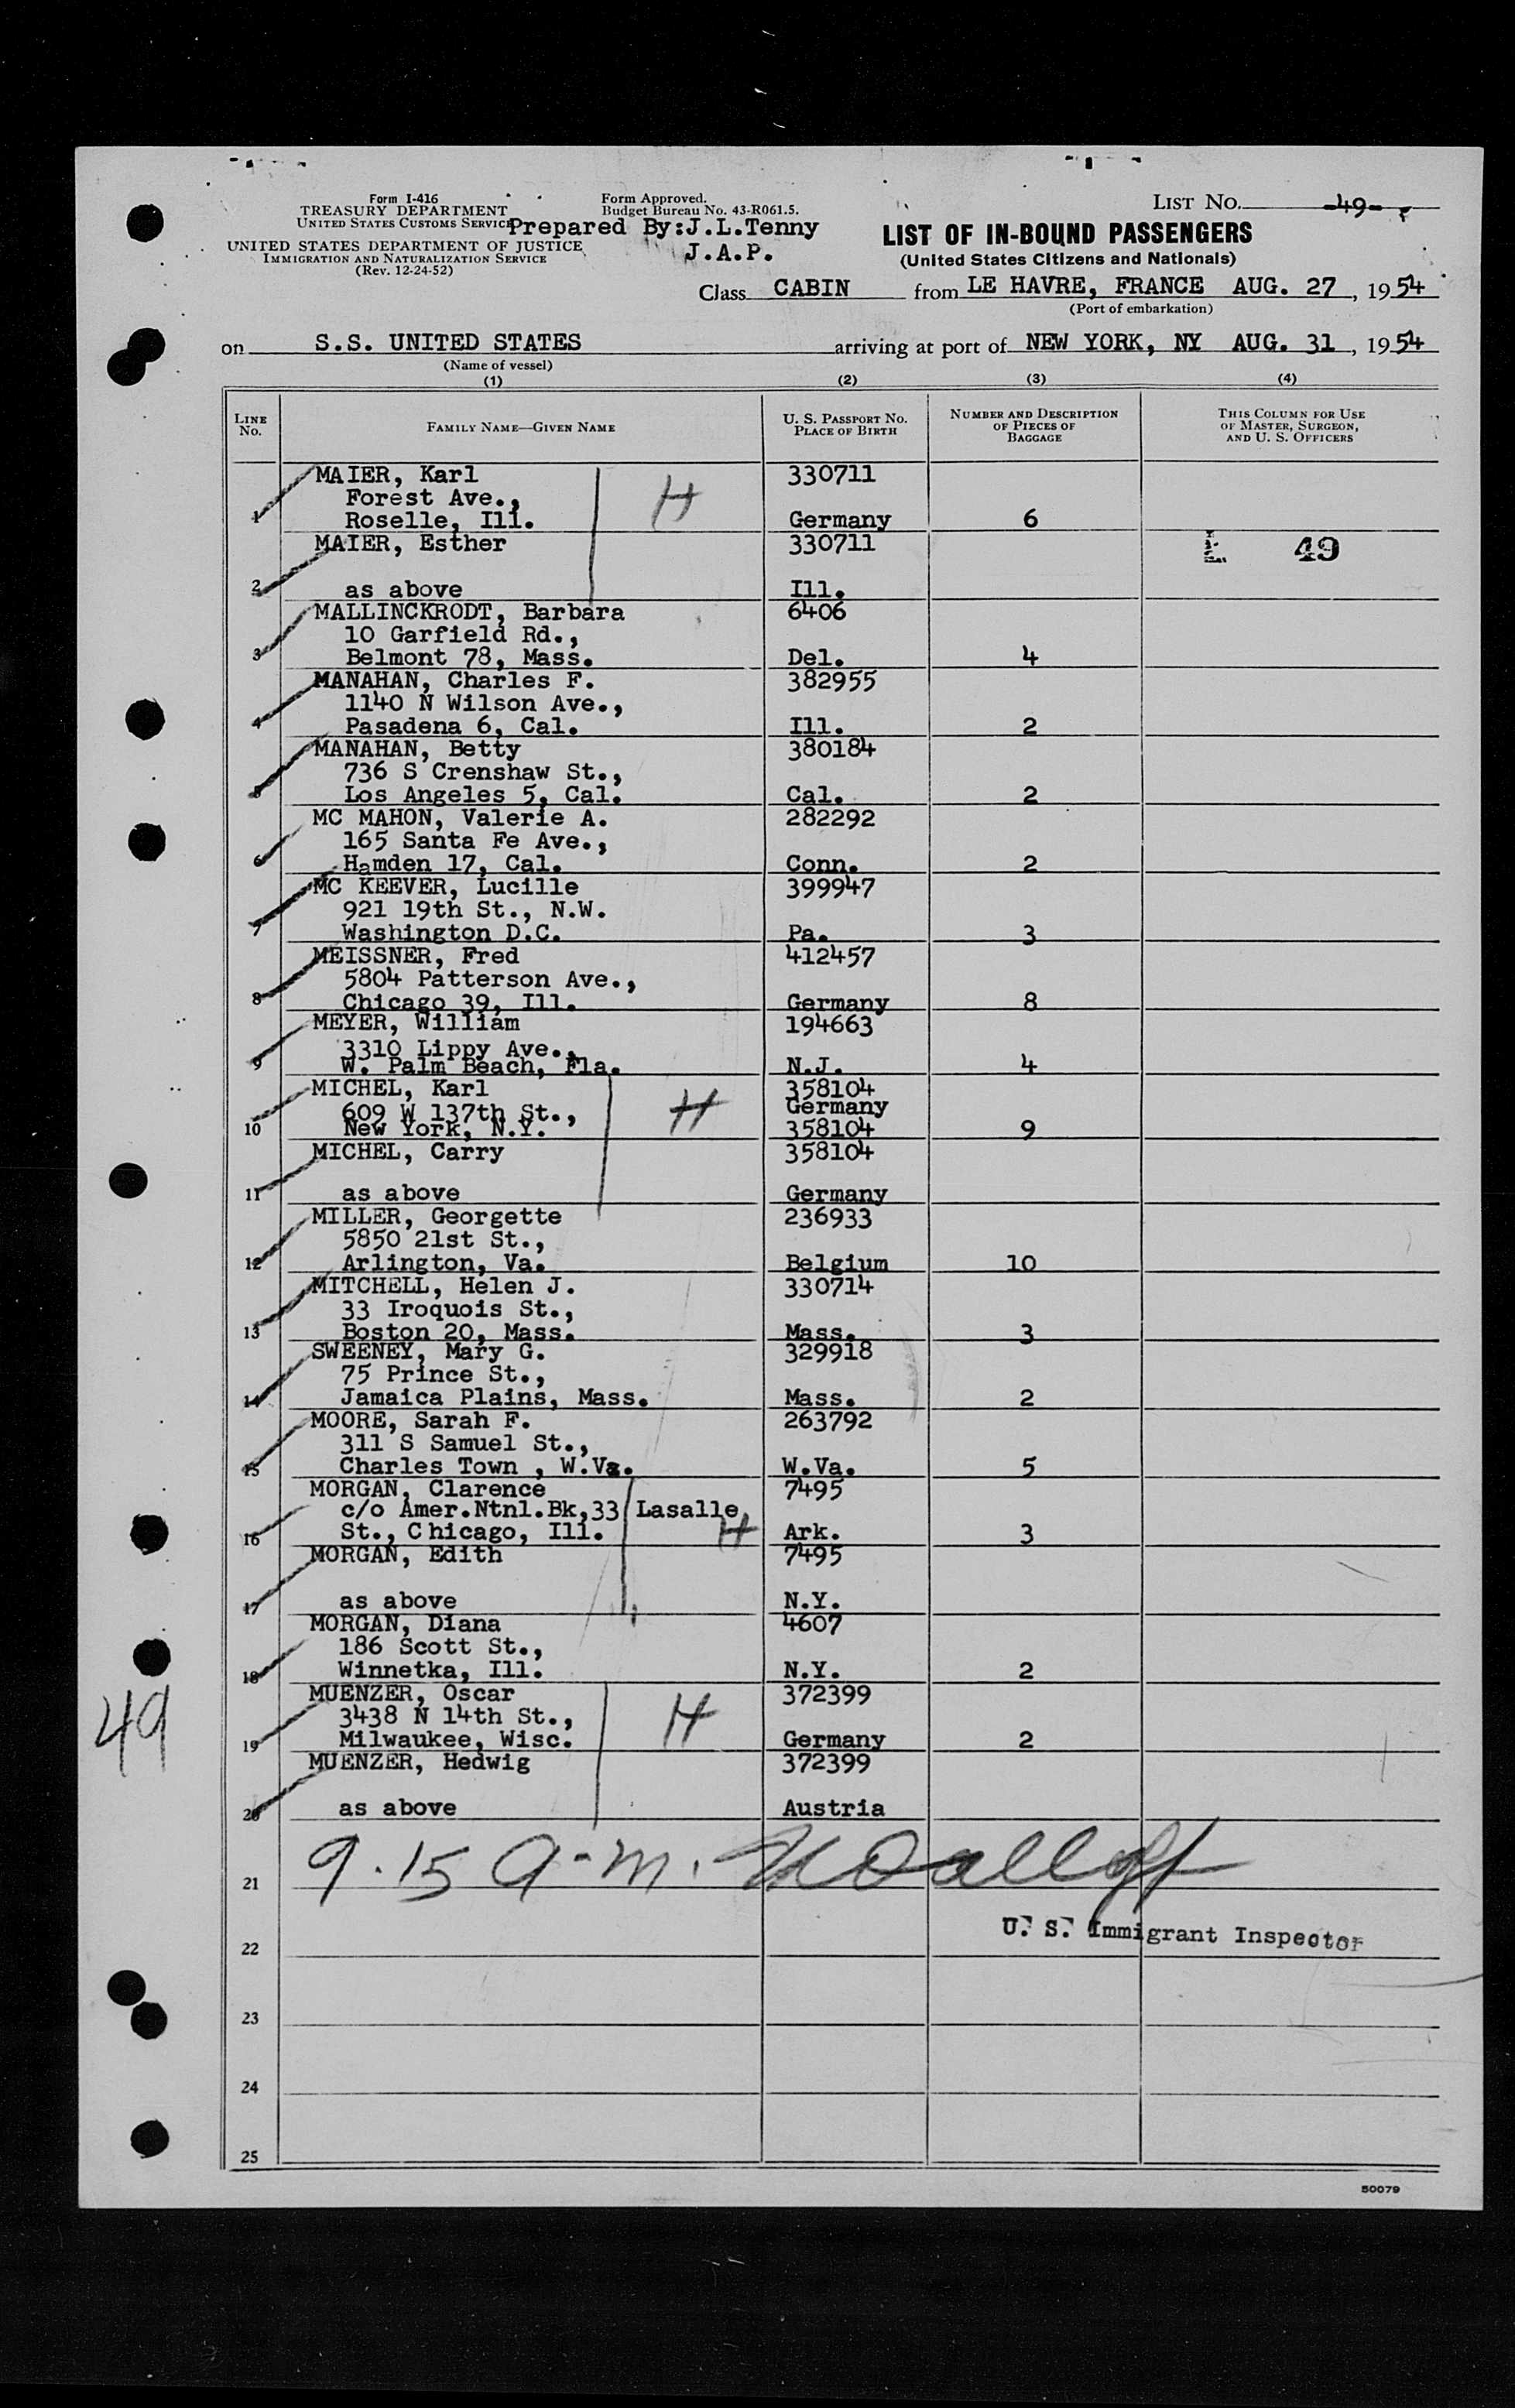 Form I-416
TREASURY DEPARTMENT
UNITED STATES CUSTOMS SERVICE
UNITED STATES DEPARTMENT OF JUSTICE
IMMIGRATION AND NATURALIZATION SERVICE
(Rev. 12-24-52)
Form Approved.
Budget Bureau No. 43-R061.5.
Prepared By:J.L.Tenny
J.A.P.
LIST No. -49-
LIST OF IN-BOUND PASSENGERS
(United States Citizens and Nationals)
Class CABIN from LE HAVRE, FRANCE AUG. 27, 1954
(Port of embarkation)
on S.S. UNITED STATES arriving at port of NEW YORK, NY AUG. 31, 1954
(Name of vessel)
(1) (2) (3) (4)
LINE No. FAMILY NAME—GIVEN NAME U. S. PASSPORT No. PLACE OF BIRTH NUMBER AND DESCRIPTION OF PIECES OF BAGGAGE THIS COLUMN FOR USE OF MASTER, SURGEON, AND U. S. OFFICERS
MAIER, Karl 330711
Forest Ave., H
1 Roselle, Ill. Germany 6
MAIER, Esther 330711 L 49
2 as above Ill.
MALLINCKRODT, Barbara 6406
10 Garfield Rd.,
3 Belmont 78, Mass. Del. 4
MANAHAN, Charles F. 382955
1140 N Wilson Ave.,
4 Pasadena 6, Cal. Ill. 2
MANAHAN, Betty 380184
736 S Crenshaw St.,
5 Los Angeles 5, Cal. Cal. 2
MC MAHON, Valerie A. 282292
165 Santa Fe Ave.,
6 Hamden 17, Cal. Conn. 2
MC KEEVER, Lucille 399947
921 19th St., N.W.
7 Washington D.C. Pa. 3
MEISSNER, Fred 412457
5804 Patterson Ave.,
8 Chicago 39, Ill. Germany 8
MEYER, William 194663
3310 Lippy Ave.,
9 W. Palm Beach, Fla. N.J. 4
MICHEL, Karl 358104
609 W 137th St., H Germany
10 New York, N.Y. 358104 9
MICHEL, Carry 358104
11 as above Germany
MILLER, Georgette 236933
5850 21st St.,
12 Arlington, Va. Belgium 10
MITCHELL, Helen J. 330714
33 Iroquois St.,
13 Boston 20, Mass. Mass. 3
SWEENEY, Mary G. 329918
75 Prince St.,
14 Jamaica Plains, Mass. Mass. 2
MOORE, Sarah F. 263792
311 S Samuel St.,
15 Charles Town , W.Va. W.Va. 5
MORGAN, Clarence 7495
c/o Amer.Ntnl.Bk,33 Lasalle,
16 St., Chicago, Ill. H Ark. 3
MORGAN, Edith 7495
17 as above N.Y.
MORGAN, Diana 4607
186 Scott St.,
18 Winnetka, Ill. N.Y. 2
MUENZER, Oscar 372399
3438 N 14th St., H
49
19 Milwaukee, Wisc. Germany 2
MUENZER, Hedwig 372399
20 as above Austria
21 9.15 a.m.
U. S. Immigrant Inspector
22
23
24
25
50079